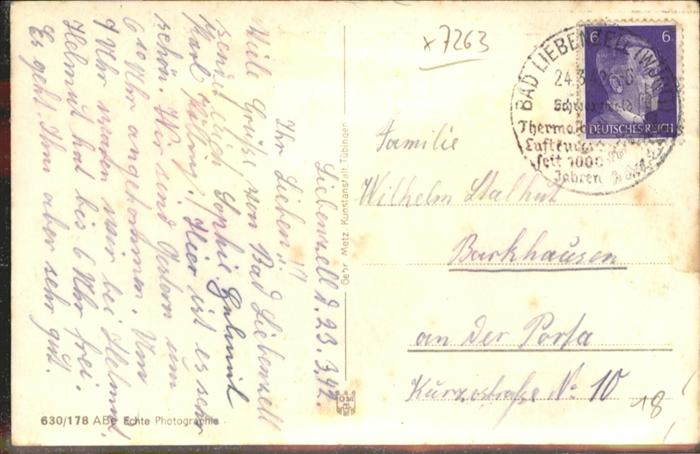 x 7263
BAD LIEBENZELL (WÜRTT)
24.3.42
Thermal
Luftkurort
seit 1000
Jahren
6 6
DEUTSCHES REICH
Familie
Wilhelm Stalhut
Barkhausen
an der Porta
Kurzestraße No 10
18
Gebr. Metz, Kunstanstalt, Tübingen
Liebenzell d. 23.3.42.
Ihr Lieben!!
Viele Grüße von Bad Liebenzell
sendet euch Sophie
Karl Hier ist es sehr
schön. Wir sind Gestern um
6 Uhr angekommen. Um
9 Uhr waren wir bei Helmut,
Helmut hat bis 6 Uhr frei.
Es geht Ihm aber sehr gut.
630/178 ABe Echte Photographie